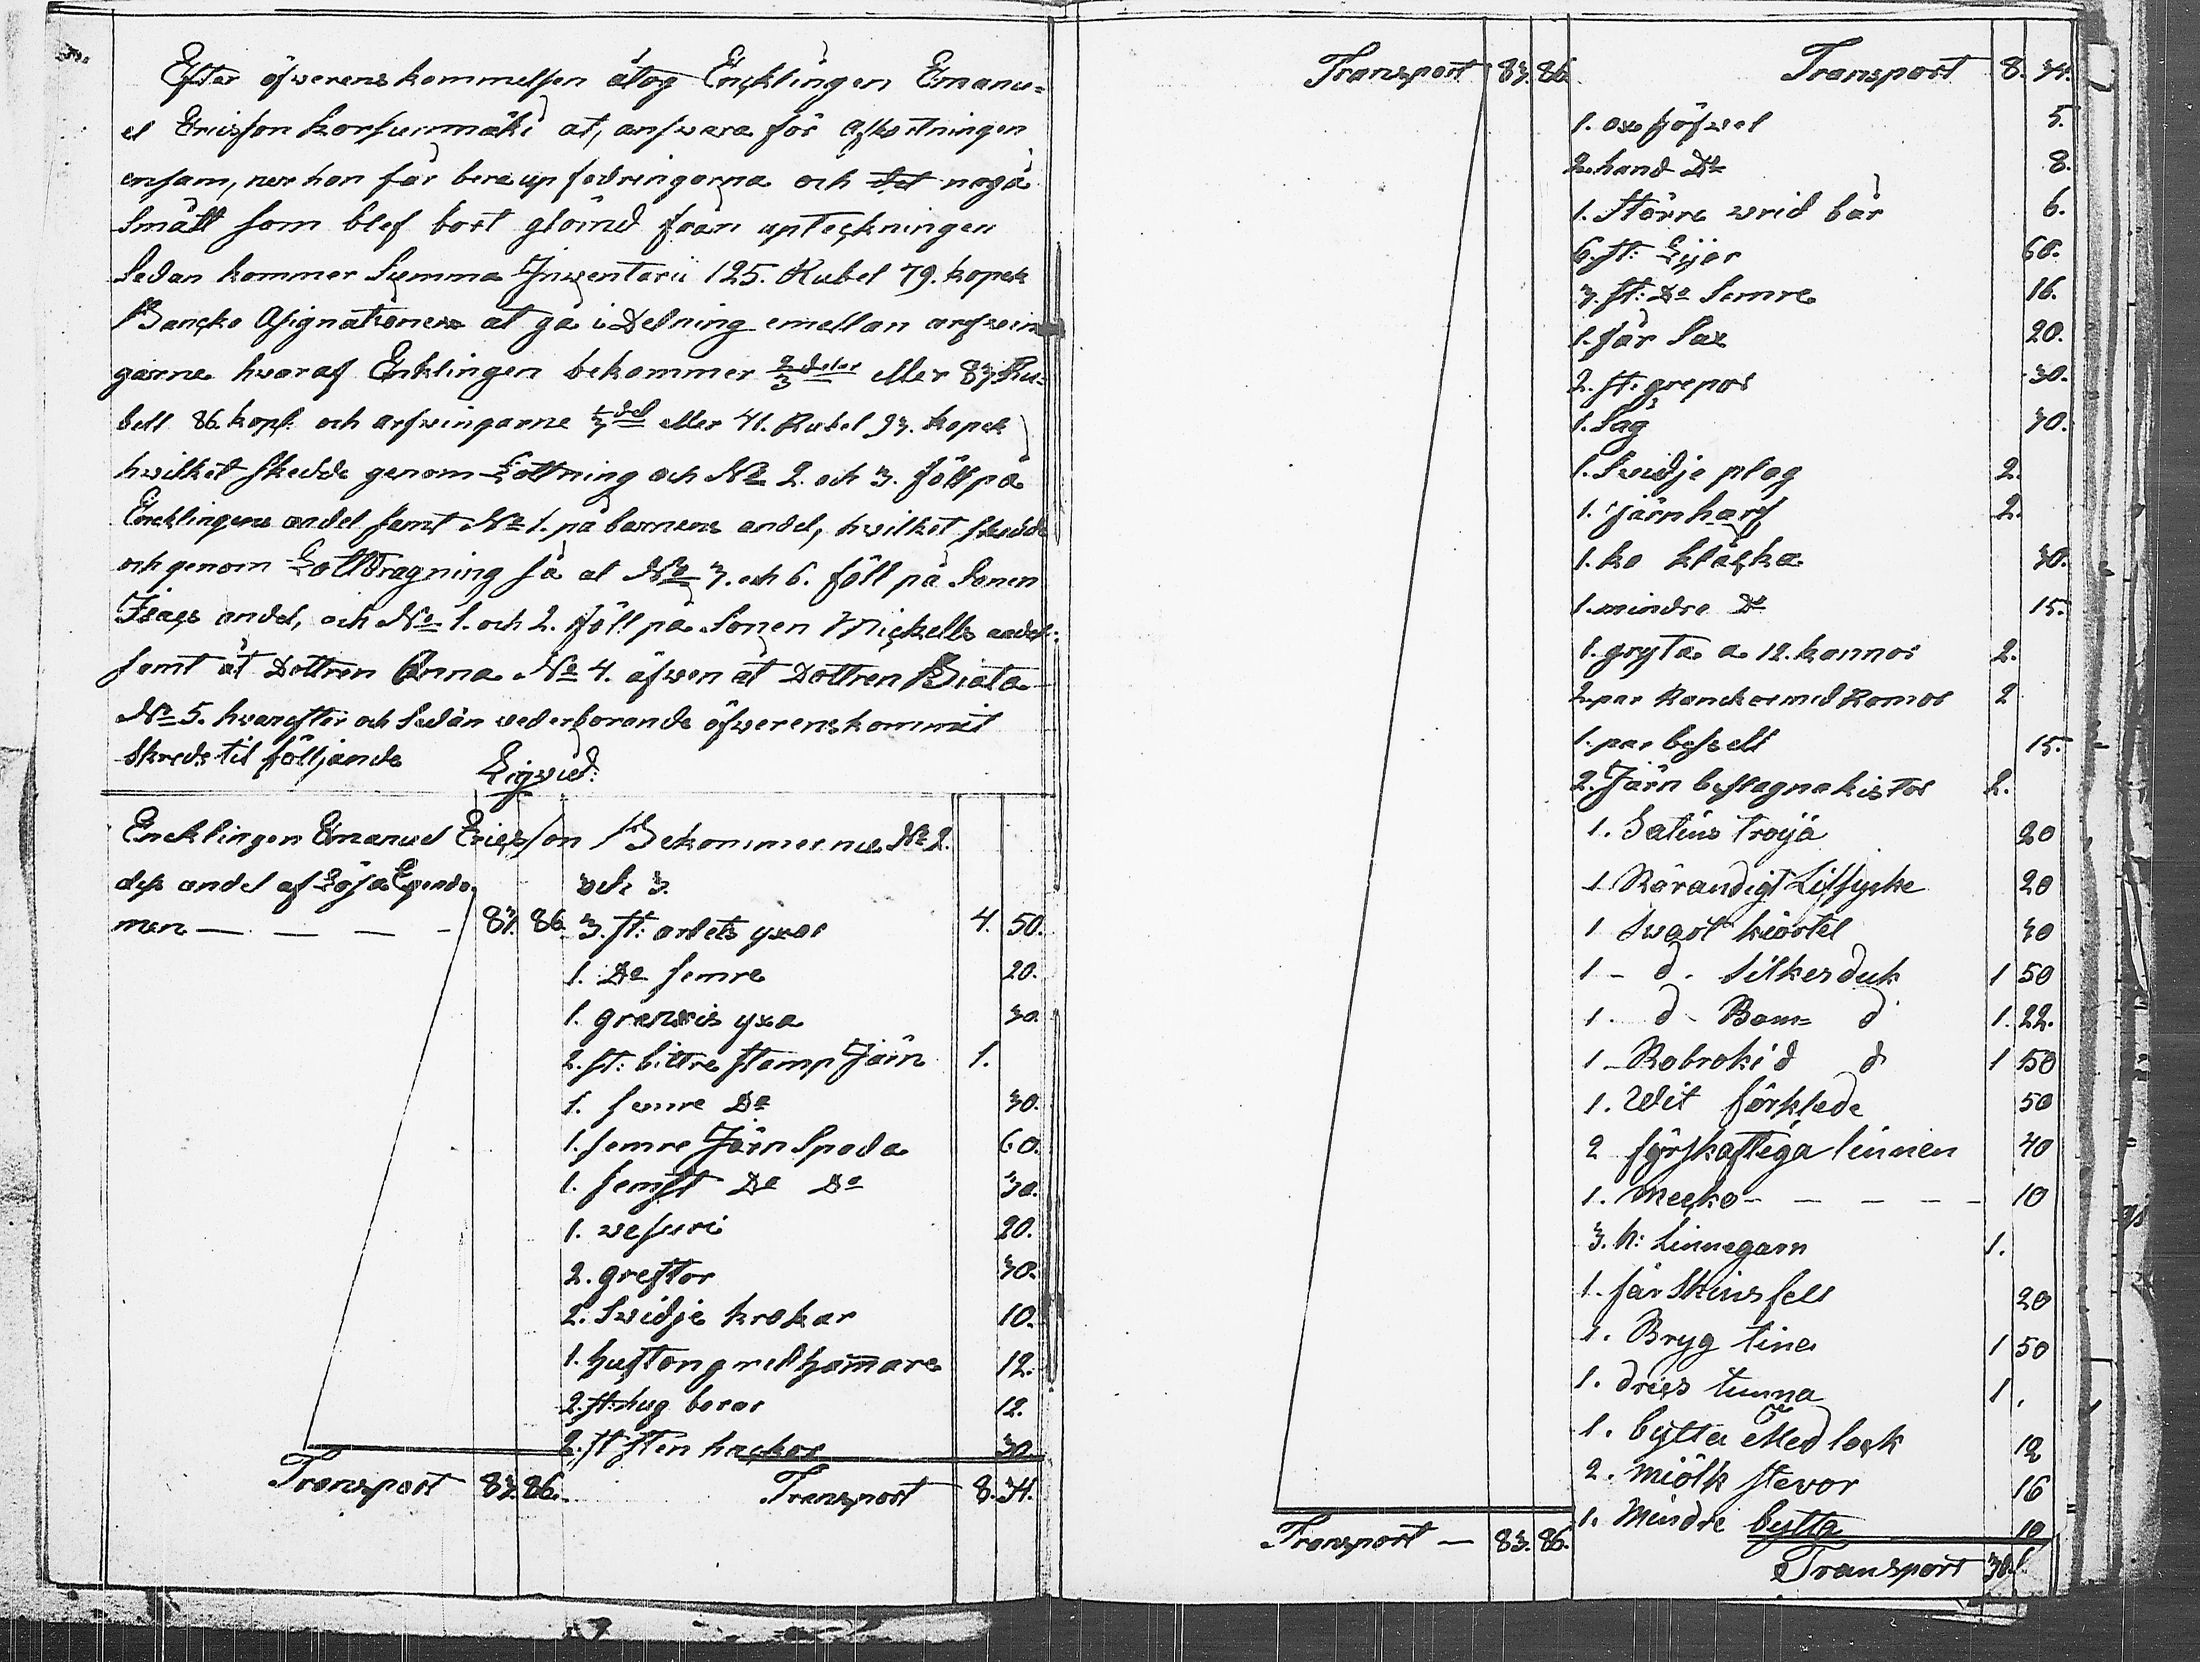 Efter öfwerenskommelsen åtog Encklingen Emanu=
el Ericsson Korsunmäki at, answara för afkortningen
ensam, ner han får bera up fodringarna och det nogå
Smått som blef bort glömd från upteckningen
Sedan kommer Summa Inventarii 125. Rubel 79. kopek
Bancko Asignationer at gå i Delning emellan arfwin
garne hvaraf Enklingen bekommer 2/3 delar eller 83. Ru=
bell 86. kop: och arfwingarne 1/3 del eller 41. Rubel 93. kopek
hvilket Skedde genom Lottning och No 2. och 3. föll på
Encklingens andel samt No 1. på barnens andel, hvilket skedde
och genom Lottdragning så at No 3. och 6. föll på Sonen
Isacs andel, och No 1. och 2. föll på Sonen Mickells andel:
samt åt Dottren Anna No 4. äfwen åt Dottren Biata
No 5. hvarefter och Sedan wederborande öfwerenskommit
Skreds til följande
Liqvid:
Encklingen Emanuel Ericsson Bekommer nu No 2.
dess andel af Lösa Egendo och 3.
men — — — — 83. 86. 3. st: arbets yxor 4. 50.
1. Do semre 20.
1. yxa 30.
2. st: bättre stamp Järn 1.
1. semre Do 30.
1. semre Järn Spada 60.
1. semst Do Do 30.
1. wesuri 20.
2. greftor 30.
2. Swidje krokar 10.
1. huftong med hammare 12.
2. st: hug borar 12.
2. st sten hackor 30.
Transport 83. 86. Transport 8. 34.
Transport 83. 86. Transport 8. 34.
1. ox höfwel 5.
2. hand Do 8.
1. Större wrid bår 6.
6. st: Lijar 60.
3. st: Do Semre 16.
1. får Sax 20.
2. st: grepar 30.
1. Såg 30.
1. Swidje plog 2.
1. järnharf 2.
1. ko klåcka 30.
1. mindre Do 15.
1. gryta a 12. kannor 2.
2. par Ranckor med Ramor 2
1. par bessell 15.
2. Järn beslagna kistor 2.
1. Satins tröja 20
1 Rörandigt Lifstycke 20
1 Swart kiortel 30
1 - d. Silkes duk 1 50
1. d - Bom= d 1. 22.
1 - d d 1 50
1. Wit förkläde 50
2 fyrskaftiga linnen 40
1. Mecko - - - - - 10
3. Linnegarn 1.
1. får Skinsfell 20
1. Bryg tina 1 50
1. drics tunna 1.
1. bytta Med lock 12
2. miölk stevor 16
1. Mindre bytta 10
Transport — 83. 86.
Transport